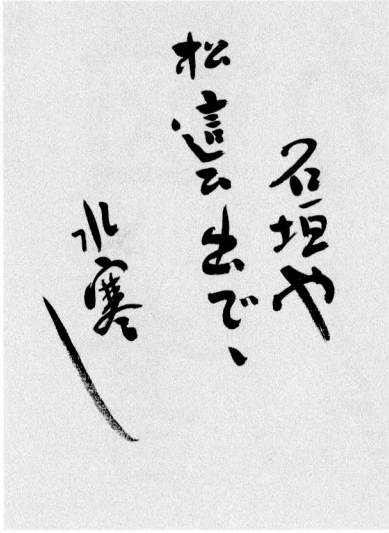 石垣や
松這ひ出でゝ
水寒し